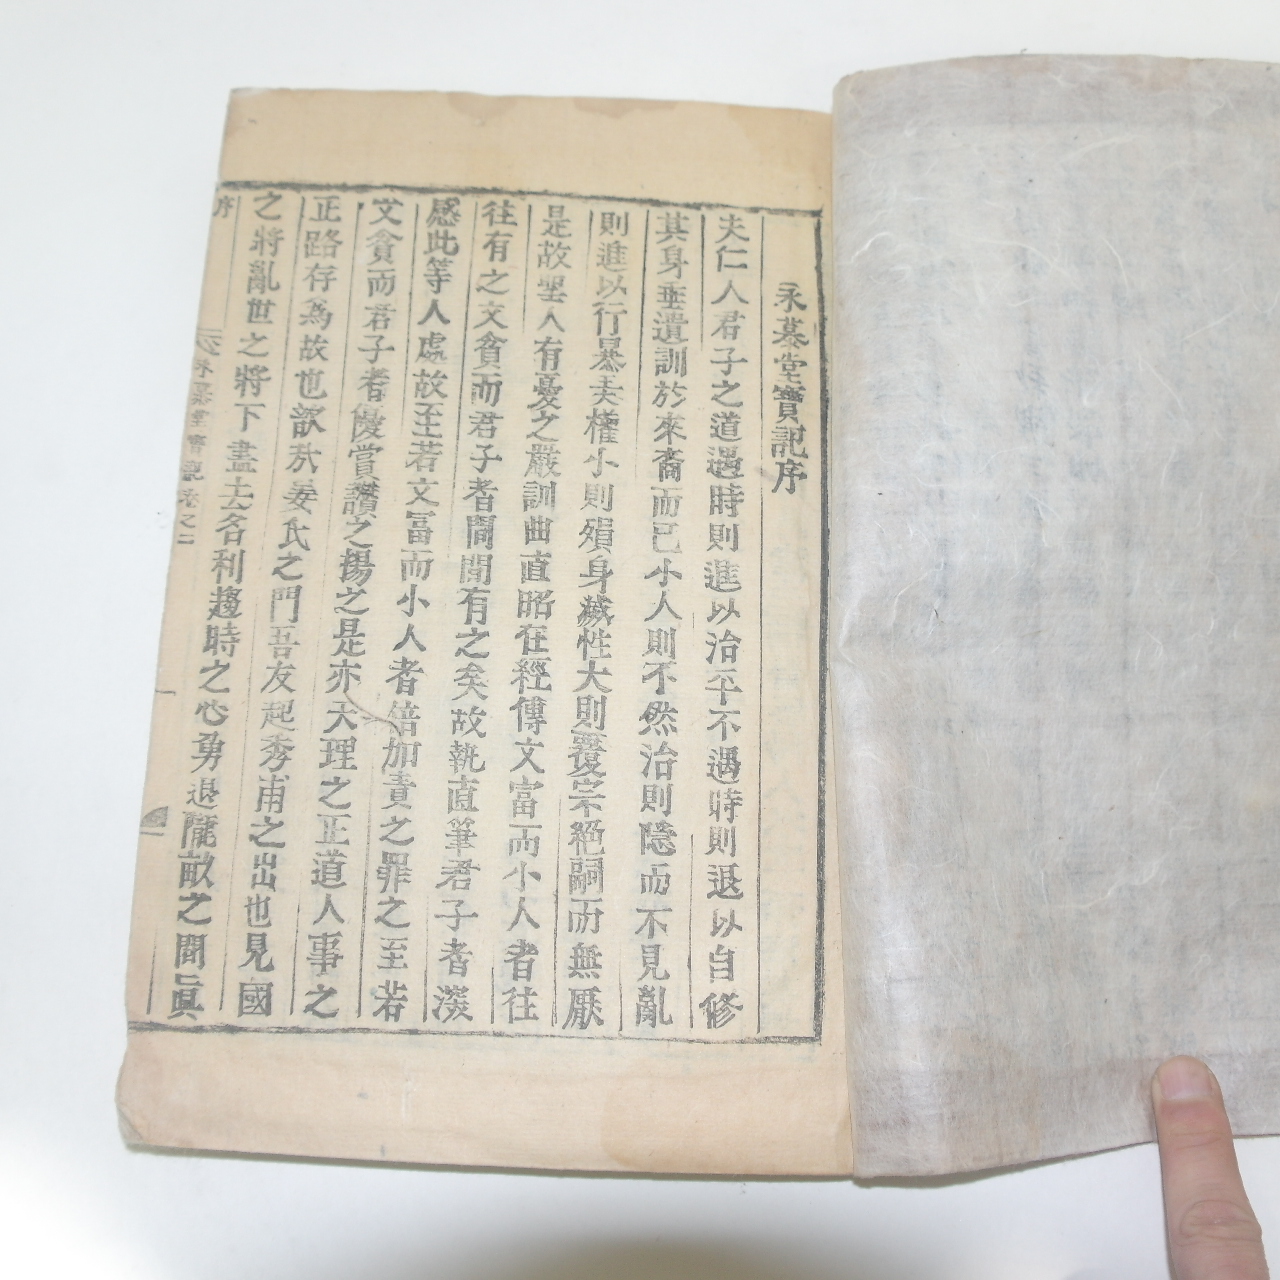 永慕堂實記序
夫仁人君子之道遇時則進以治平不遇時則退以自修
其身垂遺訓於來裔而已小人則不然治則隱而不見亂
則進以行暴美權小則殞身滅性大則覆宗絶嗣而無厭
是故聖人有憂之嚴訓曲直昭在經傳文富而小人者往
往有之文貧而君子者間間有之矣故執直筆君子者深
感此等人處故至若文富而小人者倍加責之罪之至若
文貧而君子者優賞讚之揚之是亦天理之正道人事之
正路存焉故也歆㢤姜氏之門吾友起秀甫之出也見國
之將亂世之將下盡去名利趨時之心勇退隴畝之間眞
序
永慕堂實記卷之一